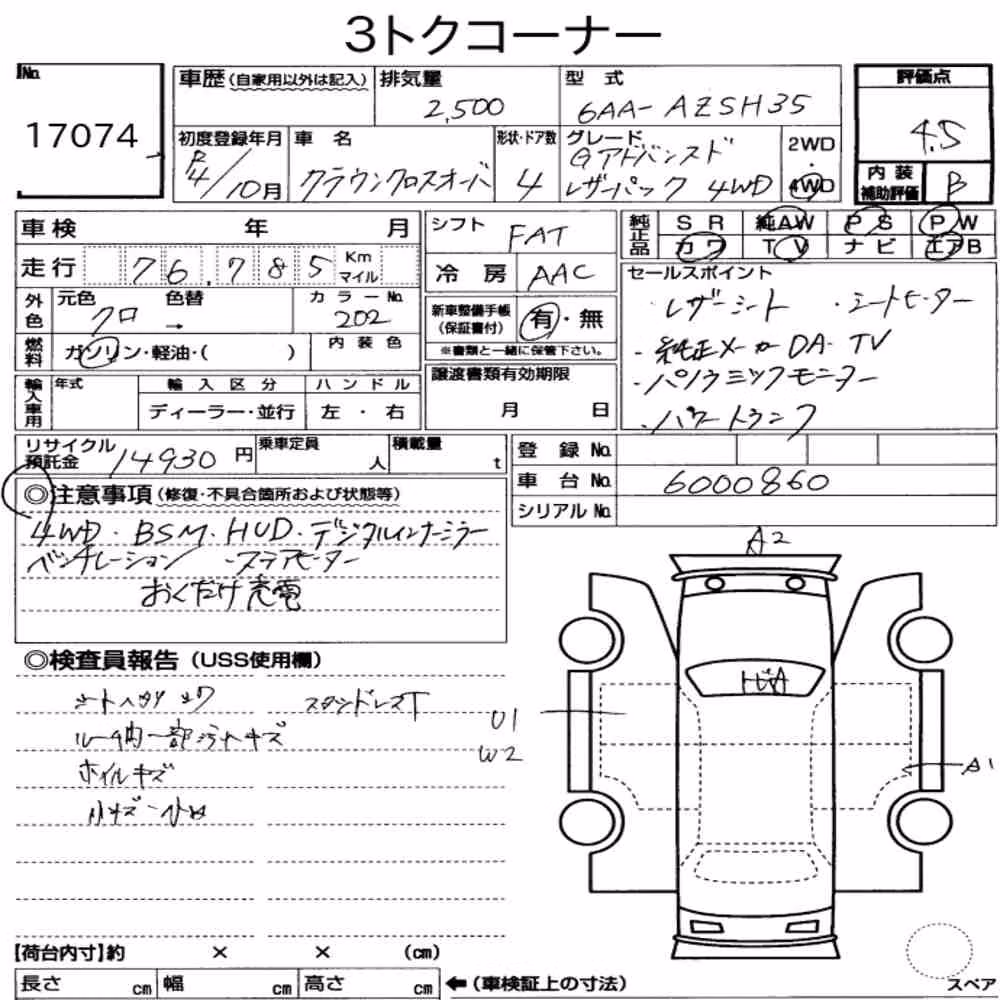 3トクコーナー
No.
17074
車歴(自家用以外は記入) 排気量 型式
2,500 6AA-AZSH35
評価点
4.5
内装補助評価 B
初度登録年月 車名 形状・ドア数 グレード 2WD・4WD
R4/10月 クラウンクロスオーバ 4 Gアドバンスド
レザーパック 4WD
車検 年 月
シフト FAT
純正品 SR 純AW PS PW
カワ TV ナビ エアB
走行 76,785 Km マイル
冷房 AAC
セールスポイント
・レザーシート ・シートヒーター
・純正メーカーDA・TV
・パノラミックモニター
・パワートランク
外色 元色 色替 カラーNo.
クロ → 202
新車整備手帳(保証書付) 有・無
※書類と一緒に保管下さい。
燃料 ガソリン・軽油・( ) 内装色
輸入車用 年式 輸入区分 ハンドル
ディーラー・並行 左・右
譲渡書類有効期限
月 日
リサイクル預託金 14930円 乗車定員 人 積載量 t
登録No.
車台No. 6000860
シリアルNo.
◎注意事項(修復・不具合箇所および状態等)
4WD・BSM・HUD・デジタルインナーミラー
ベンチレーション ・ステアヒーター
おくだけ充電
◎検査員報告(USS使用欄)
スタンドレスT
ルーム内一部汚れキズ
ホイルキズ
小キズ
A2
U1
W2
A1
【荷台内寸】約 × × (cm)
長さ cm 幅 cm 高さ cm ←(車検証上の寸法)
スペア